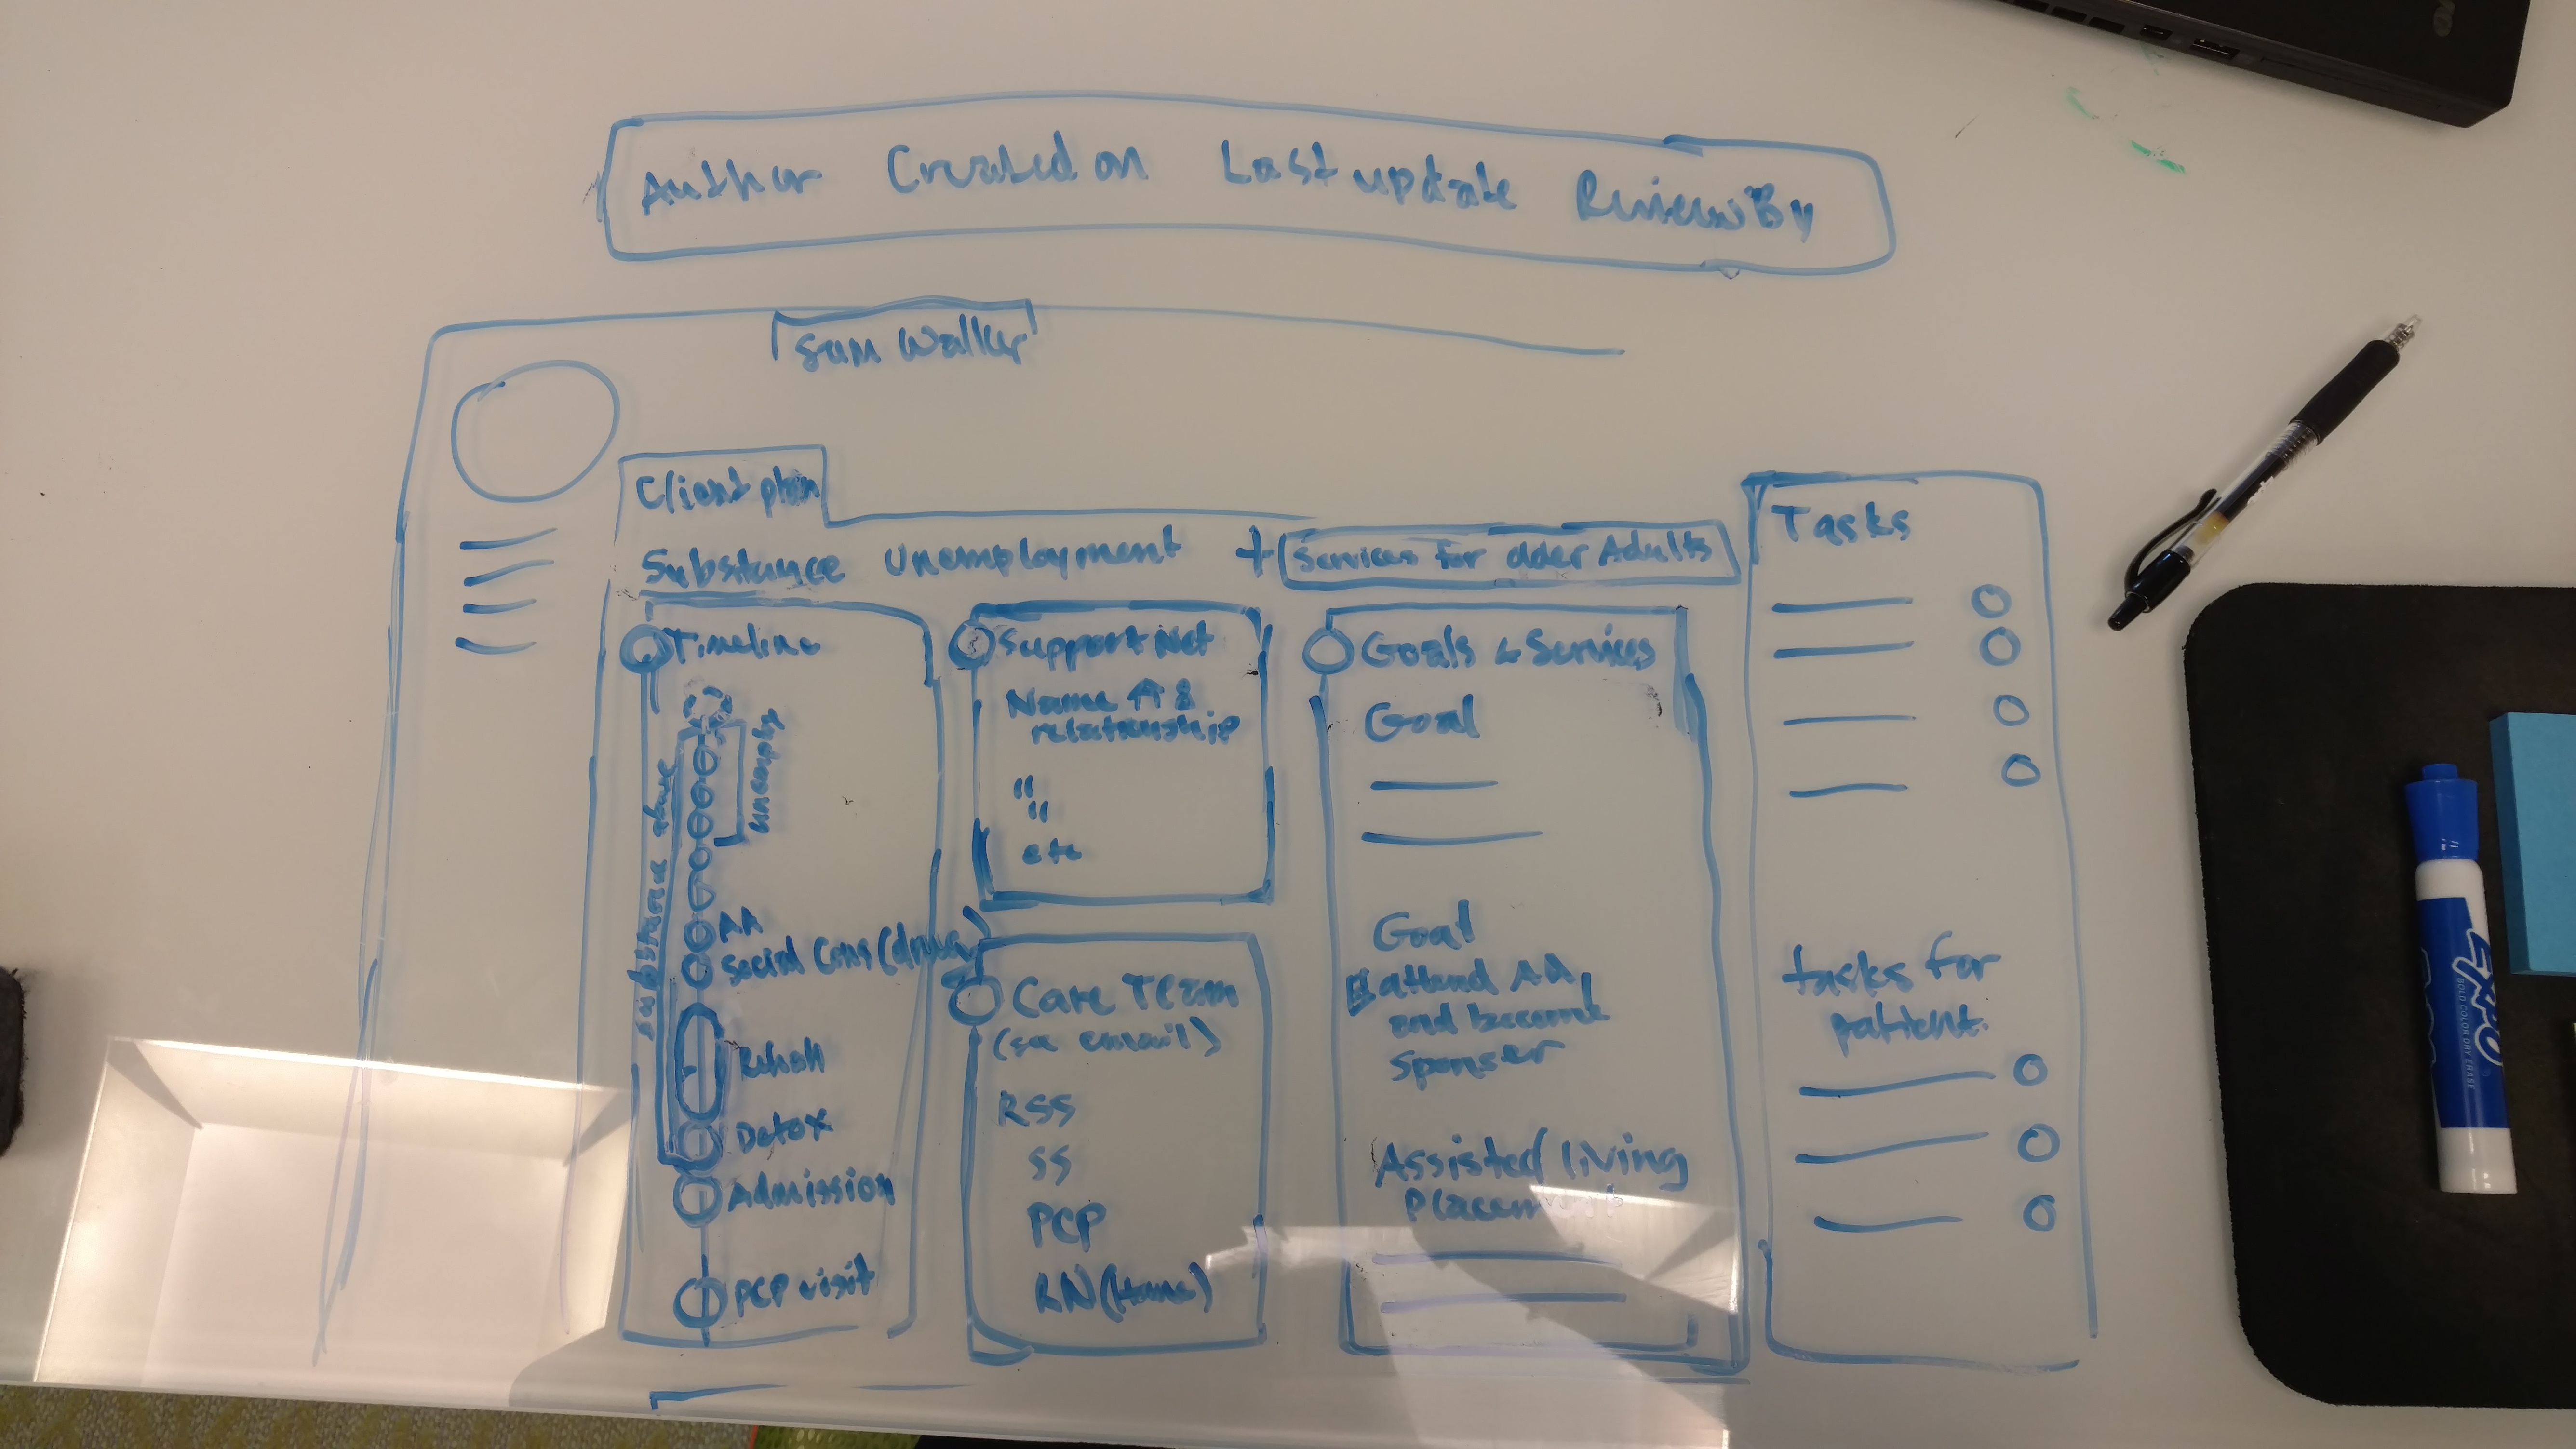 Author Created on Last update Review By
Sam Walker
Client plan
Substance Unemployment + Services for older Adults
Timeline
substance abuse
unemploy
AA
Social Cons (drug)
Rehab
Detox
Admission
PCP visit
Support Net
Name &
relationship
"
"
etc
Care Team
(see email)
RSS
SS
PCP
RN (Home)
Goals & Services
Goal
Goal
attend AA
and become
sponser
Assisted living
Placement
Tasks
tasks for
patient.
EXPO